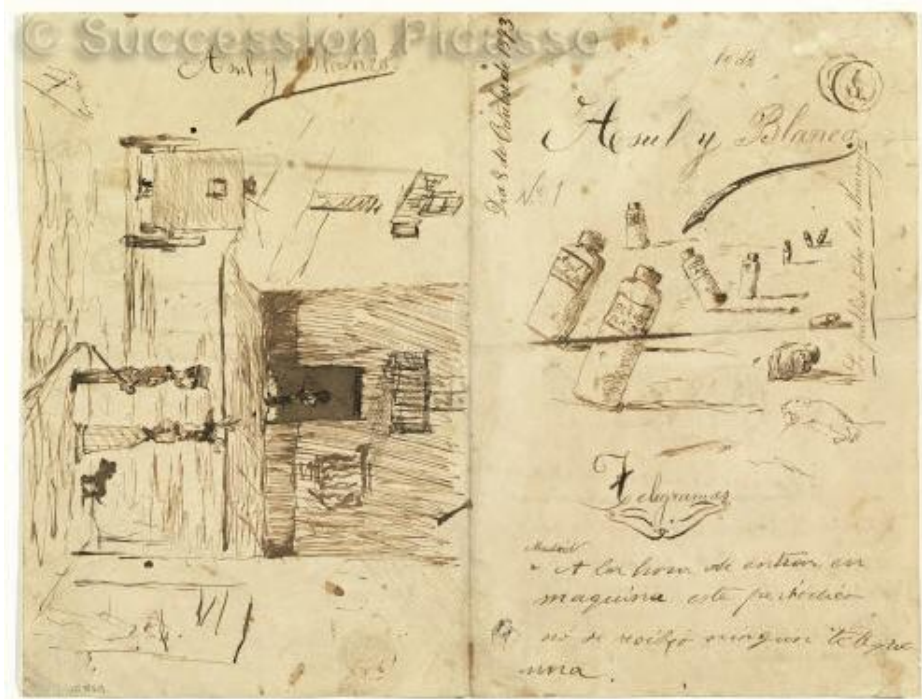 © Succession Picasso
Asul y Blanco
Dia 8 de Octubre de 1893
Asul y Blanco
Nº 1
Se publica todos los domingos
Telegramas
Madrid
A la hora de entrar en
maquina este periódico
no se recibió ningun telegra
ma.